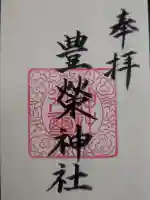 奉拝
豊榮神社